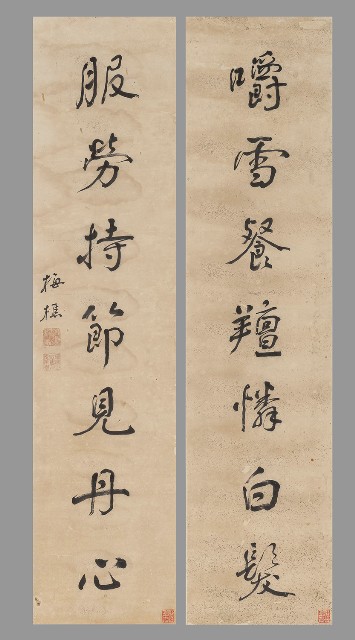 嚼雪餐羶憐白髮
服勞持節見丹心
梅樵